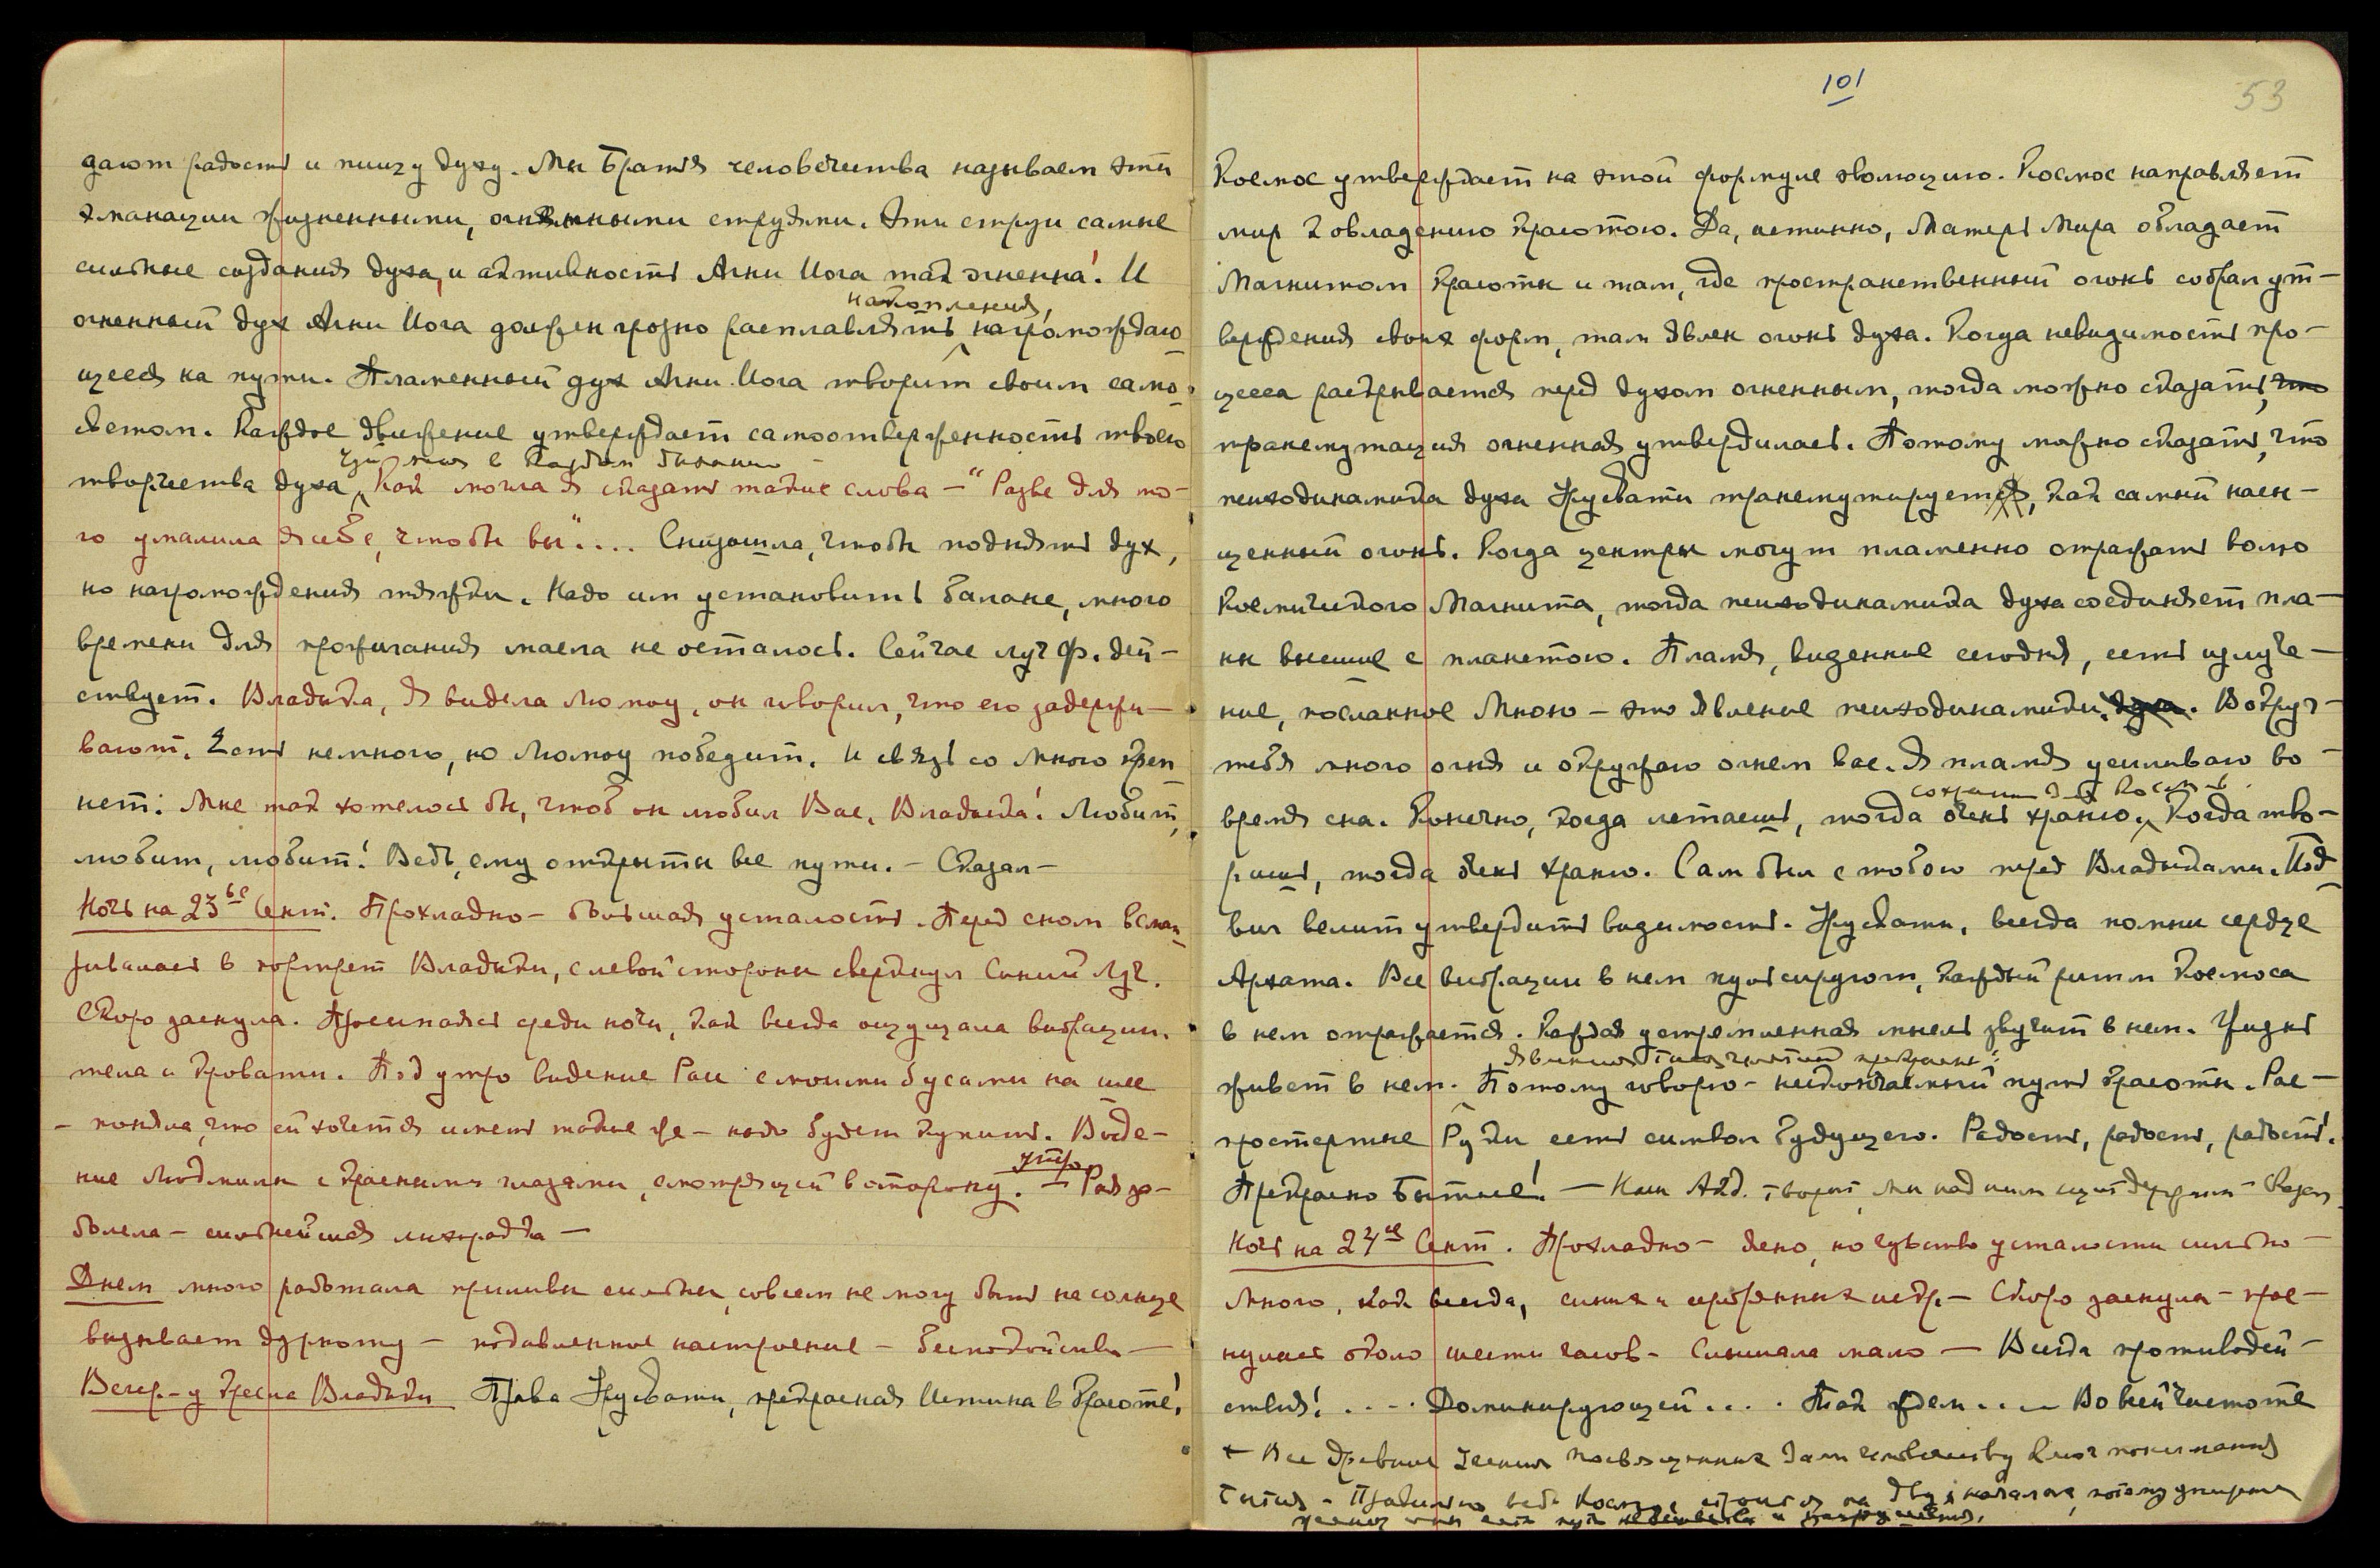 дают радость и пищу духу. Мы Братья человечества называем эти
эманации жизненными, огненными струями. Эти струи самые
сильные создания духа, и активность Агни Йога так огненна! И
накопления,
огненный дух Агни Йога должен грозно расплавлять нагромождаю-
щееся на пути. Пламенный дух Агни Йога творит своим само-
цветом. Каждое движение утверждает самоотверженность твоего
в каждом дыхании
творчества духа. Как могла я сказать такие слова — "Разве для то-
го умалила я себе, чтобы вы".... Снизошла, чтобы поднять дух,
но нагромождения тяжки. Надо им установить баланс, много
времени для прожигания масла не осталось. Сейчас луч Ф. дей-
ствует. Владыка, я видела Люмоу, он говорил, что его задержи-
вают. Есть немного, но Люмоу победит. И связь со Мною креп-
нет. Мне так хотелось бы, чтоб он любил Вас, Владыка! Любит,
любит, любит! Ведь, ему открыты все пути. — Сказал —
Ночь на 23ье Сент. Прохладно — большая усталость. Перед сном всмат-
ривалась в портрет Владыки, с левой стороны сверкнул Синий Луч.
Скоро заснула. Просыпаясь среди ночи, как всегда ощущала вибрации
тела и кровати. Под утро видение Раи с моими бусами на шее
— поняла, что ей хочется иметь такие же — надо будет купить. Виде-
ние Людмилы с красными глазами, смотрящей в сторону. — Утро Рая за-
болела — сильнейшая лихорадка —
Днем много работала приливы сильны, совсем не могу быть на солнце
вызывает дурноту — подавленное настроение — беспокойство —
Вечер — у кресла Владыки Права Урусвати, прекрасная Истина в Красоте!
101
53
Космос утверждает на этой формуле эволюцию. Космос направляет
мир к овладению красотою. Да, истинно, Матерь Мира обладает
Магнитом Красоты и там, где пространственный огонь собрал ут-
верждения своих форм, там явлен огонь духа. Когда невидимость про-
цесса раскрывается перед духом огненным, тогда можно сказать, что
трансмутация огненная утвердилась. Потому можно сказать, что
психодинамика духа Урусвати трансмутируется, как самый насы-
щенный огонь. Когда центры могут пламенно отражать волю
Космического Магнита, тогда психодинамика духа соединяет пла-
ны высшие с планетою. Пламя, виденное сегодня, есть излуче-
ние, посланное Мною — это явление психодинамики духа. Вокруг
тебя много огня и окружаю огнем вас. Я пламя усиливаю во
время сна. Конечно, когда летаешь, тогда очень храню. Когда тво-
ришь, тогда очень храню. Сам был с тобою перед Владыками. Под-
виг велит утвердить видимость. Урусвати, всегда помни сердце
Архата. Все вибрации в нем пульсируют, каждый ритм Космоса
в нем отражается. Каждая устремленная мысль звучит в нем. Жизнь
живет в нем. Потому говорю — нескончаемый путь красоты. Рас-
простертые Руки есть символ Будущего. Радость, радость, радость!
Прекрасно Бытие! — Наш Акд. творит, мы над ним щит держим —
Ночь на 24ое Сент. Прохладно — ясно, но чувство усталости сильно —
Много, как всегда, синих и серебряных искр — Скоро заснула — прос-
нулась около шести часов — Слышала мало — Всегда противодей-
ствия! .... Доминирующей .... Так ждем .... Во всей чистоте
+ Все древние учения посвященных дали человечеству ключ понимания
бытия. Правильно ведь Космос строится на двух началах, потому